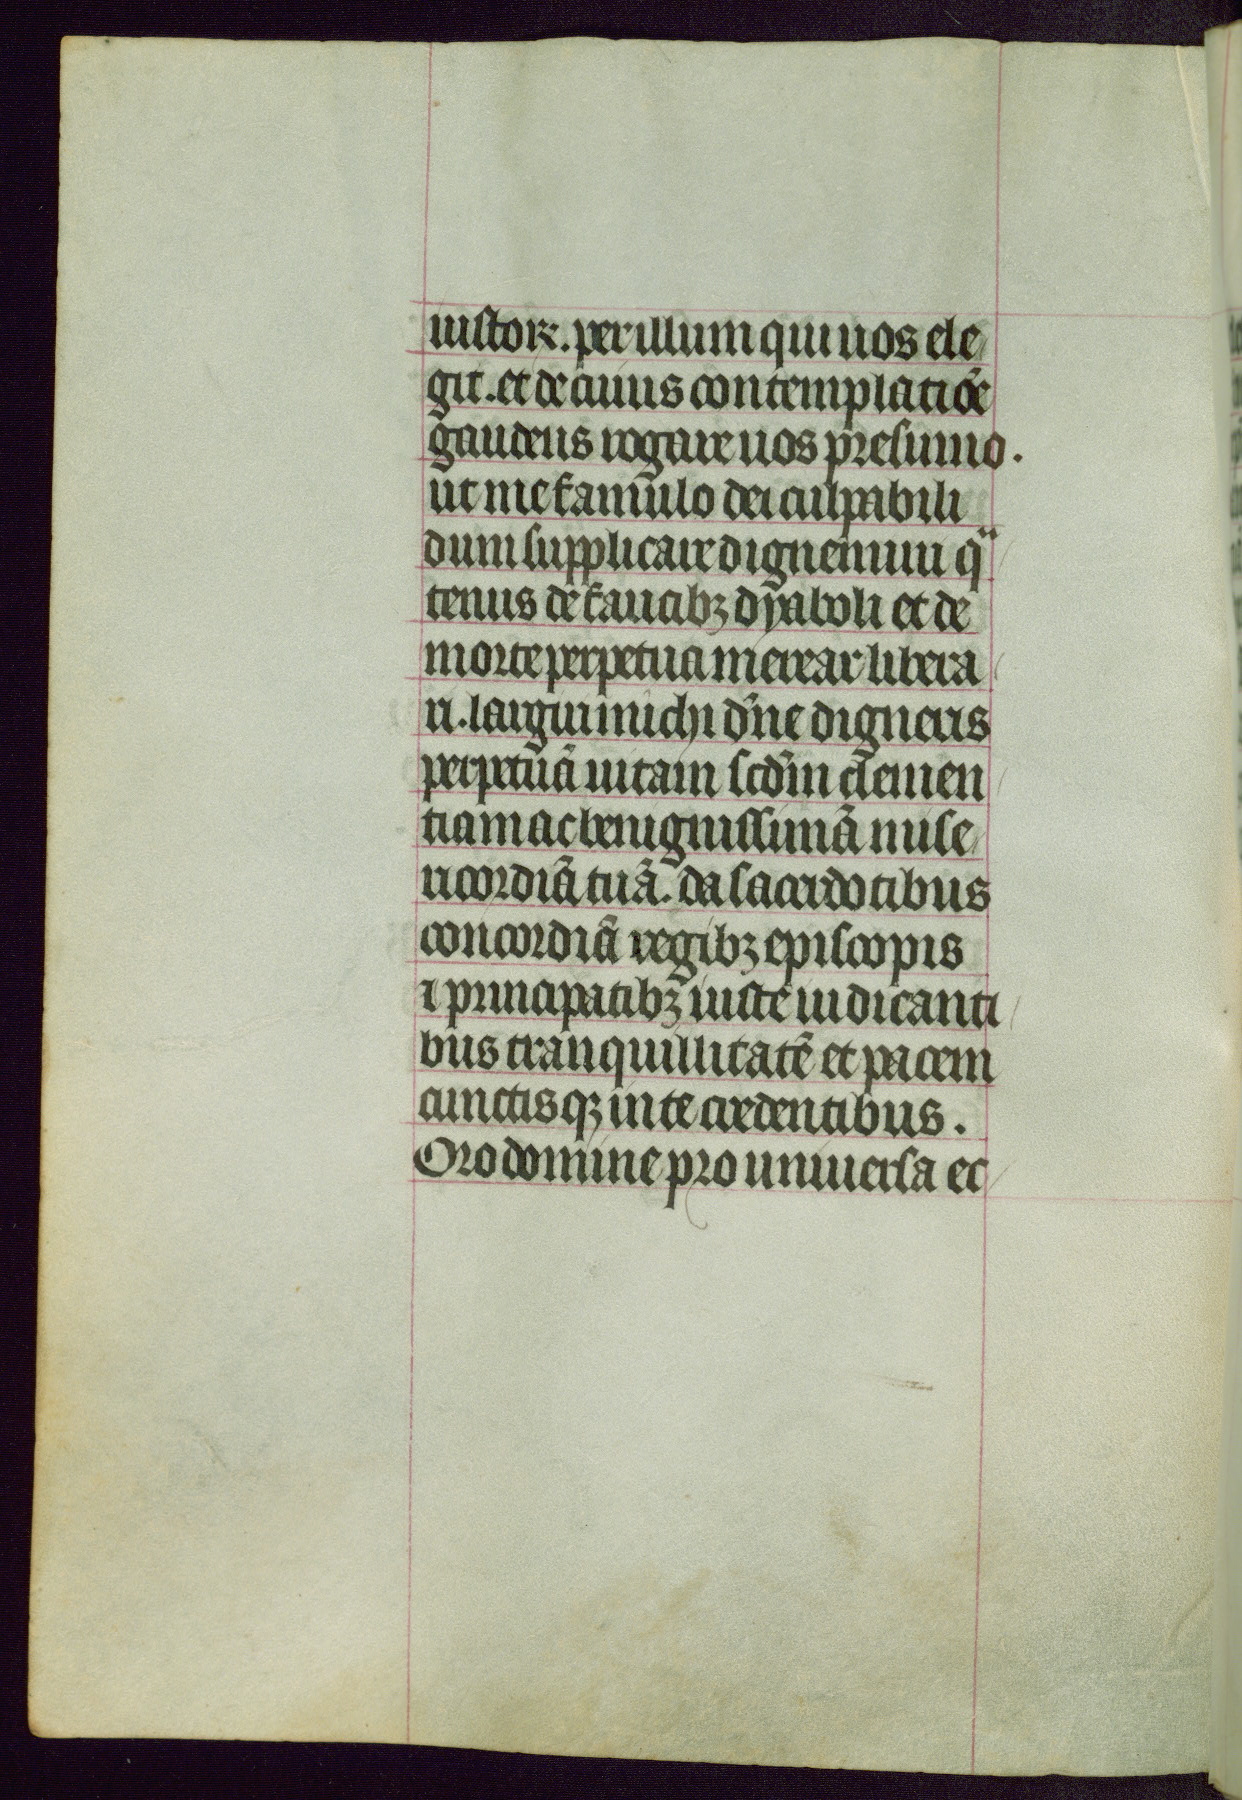 iustoꝝ. per illum qui uos ele
git. et de cuius contemplatiõe
gaudetis rogare uos presumo.
ut me famulo dei culpabili
dum supplicare dignemini qͣ
tenus de faucibꝫ dyaboli et de
morte perpetua merear libera
ri. largiri michi dñe digneris
perpetuã uitam scdm clemen
tiam ac benignissimã mise
ricordiã tuã. da sacerdotibus
concordiã regibꝫ episcopis
⁊ principatibꝫ iuste iudicanti
bus tranquillitatẽ et pacem
cunctisqꝫ in te credentibus.
Oro domine pro uniuersa ec